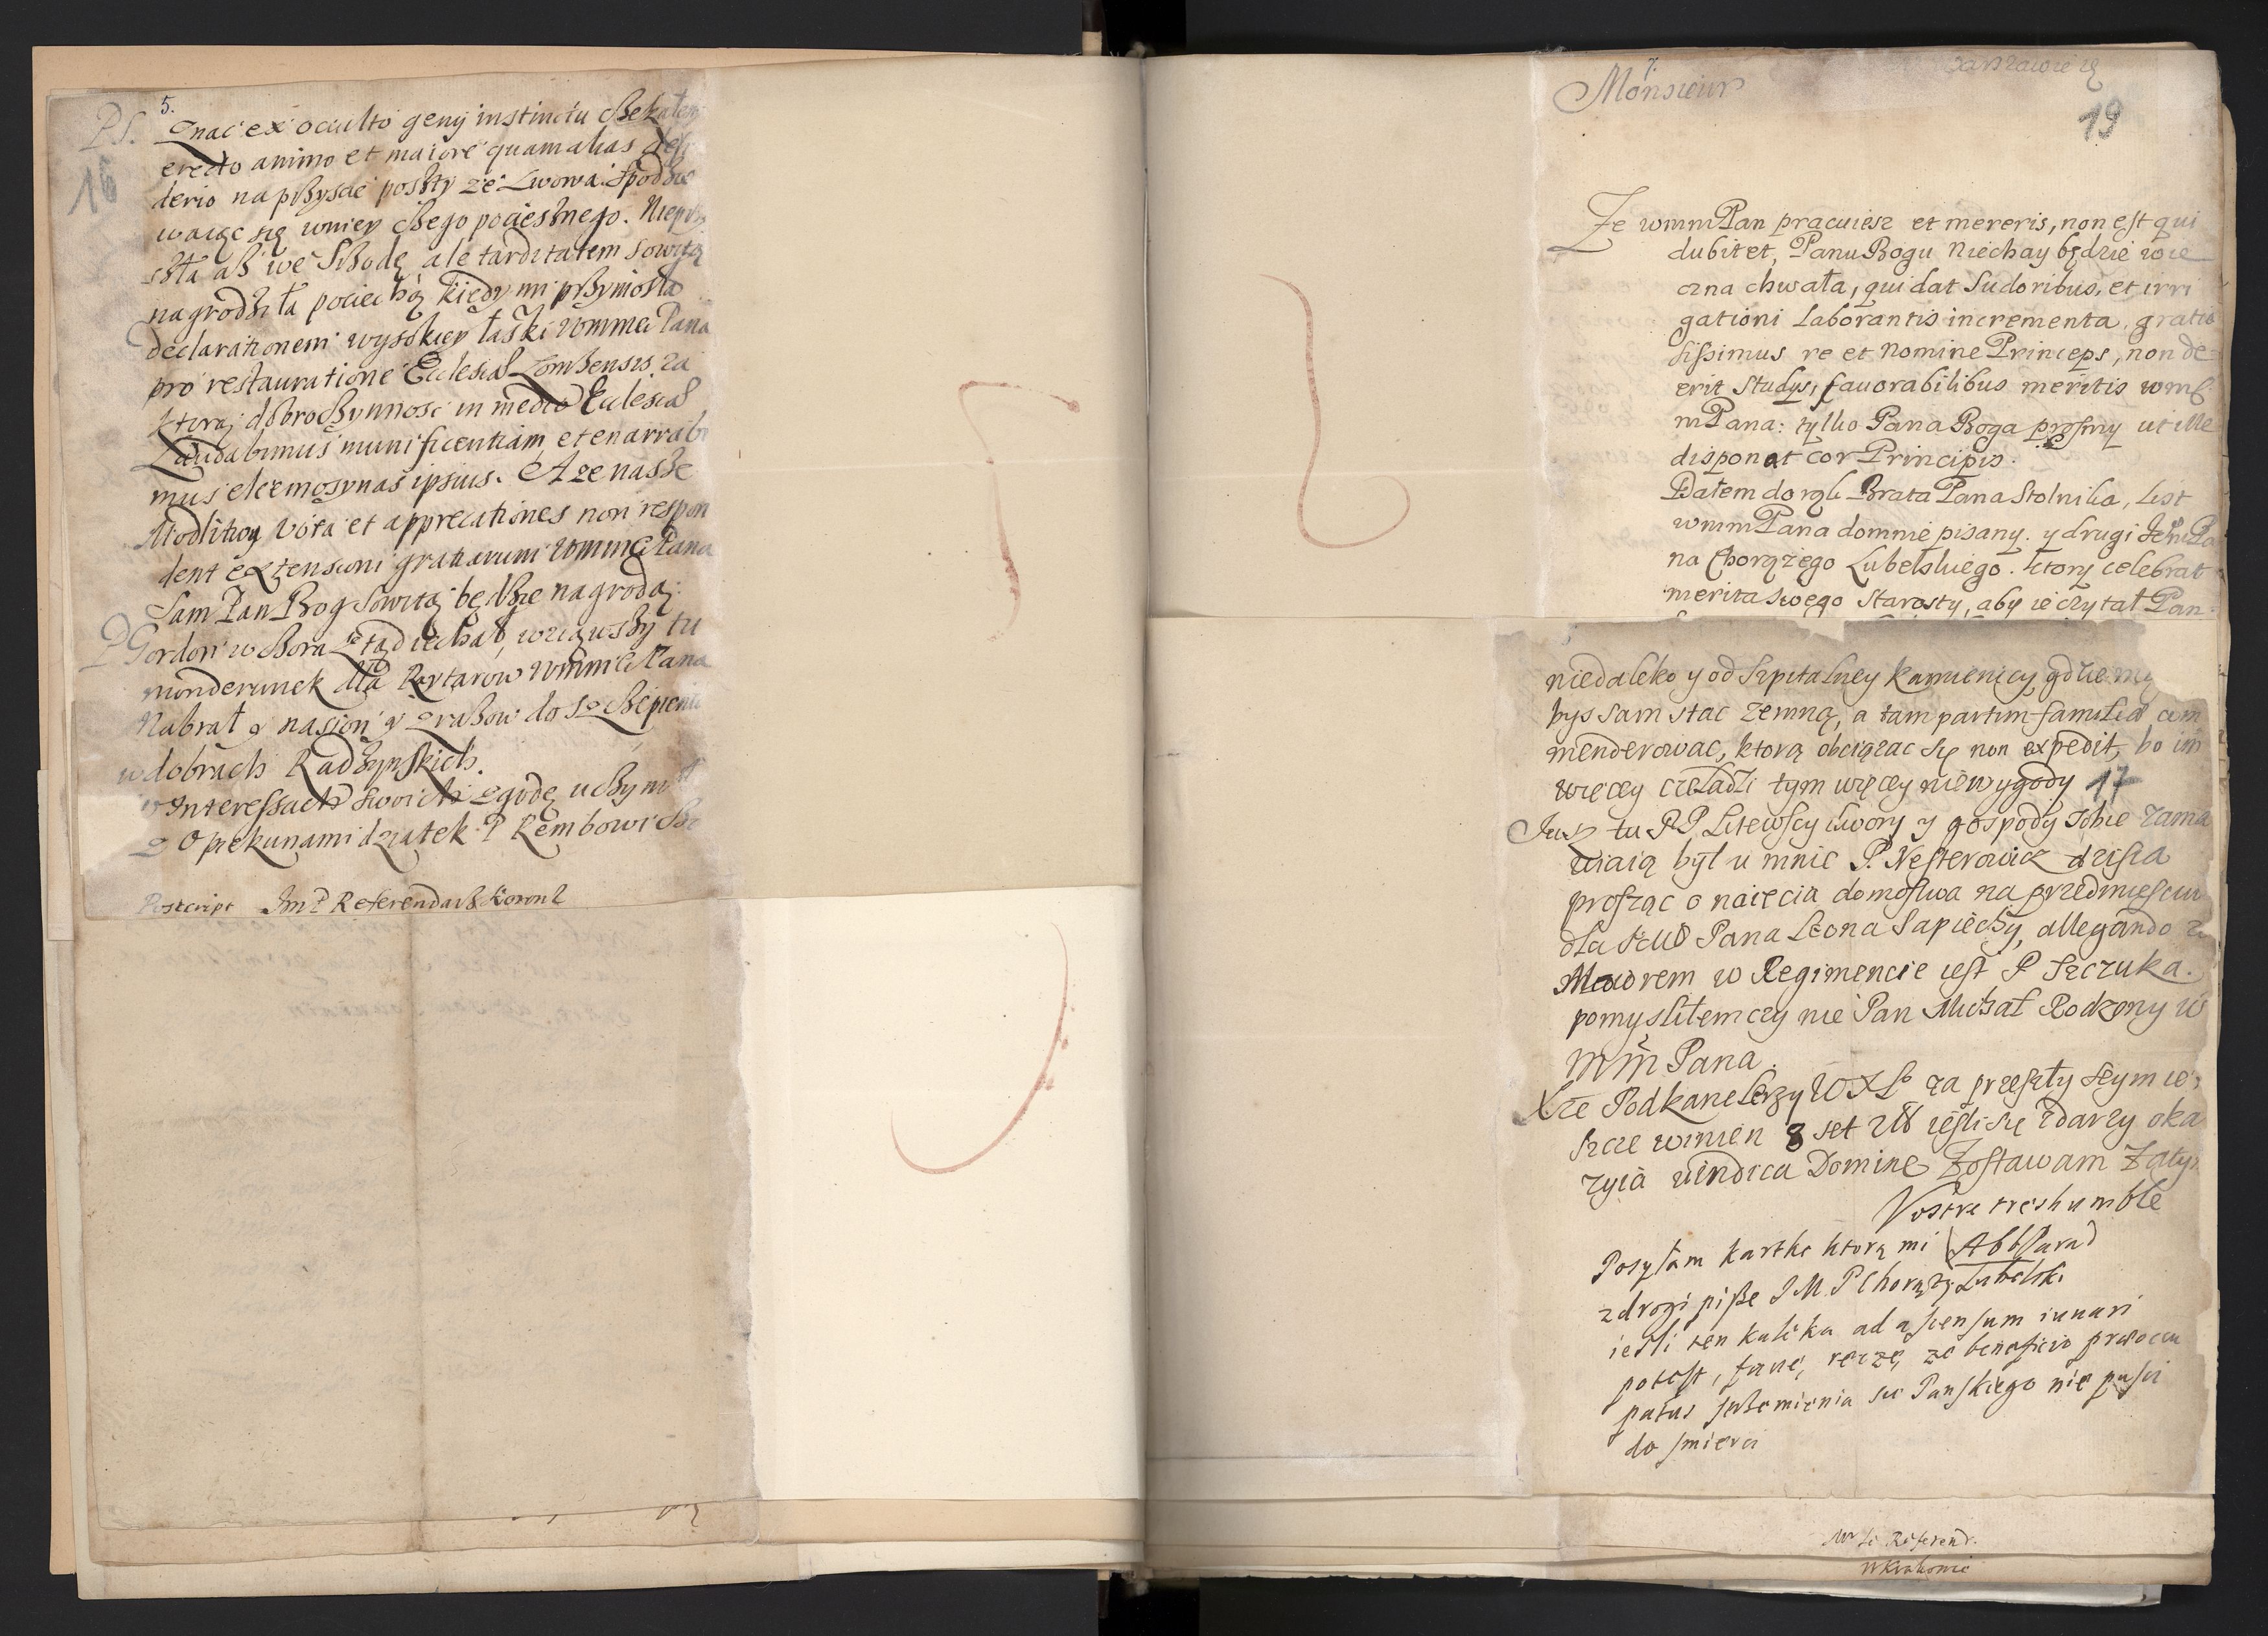 5.
P.S. Znać ex occulto geny instinctu czekałem
16
erecto animo et maiore quam alias desi
derio na przyscie poszty ze Lwowa. Spodzie
waiąc się wniey czego pociesznego. Nieprzy
szła aż we Szrodę, ale tarditatem sowitą
nagrodziła pociechą kiedy mi przyniosła
declarationem wysokiey łaski wmmci Pana
pro restauratione Ecclesiae Lomzensis. za
ktorą dobroczynnosc in medio Ecclesiae
Laudabimus munificentiam, et enarrabi
mus eleemosynas ipsius. A ze nasze
Modlitwy Vota et apprecationes non respon
dent extensioni gratiarum wmmci Pana
Sam Pan Bog sowitą będzie nagrodą.
P Gordon wczora ztąd iechał, wziąwszy tu
monderunek dla Rartarow wmmci Pana
Nabrał y nasion y do szczepienia
w dobrach Radzynskich.
w Interessach swoich zgodę uczynił
z Opiekunami dziatek P Rembowicze
Postcript Im P Referendarz Koron
7.
Monsieur
19
Ze wmmPan pracuiesz et mereris, non est qui
dubitet, Panu Bogu niechay będzie wie
czna chwała, qui dat Sudoribus, et irri
gationi Laborantis incrementa, gratio
sissimus re et nomine Princeps, non de=
erit Studys, fauorabilibus meritis wmc
mPana: tylko Pana Boga prosmy ut ille
disponat cor Principis.
Dałem do rąk Brata Pana Stolnika, list
wmmPana do mnie pisany. y drugi JeoPa
na Chorążego Lubelskiego. ktory celebrat
merita swego Starosty, aby ie czytał Pan
niedaleko y od Szpitalney kamienicy gdzie mg
bys sam stac zemną, a tam partim familiae com
menderowac, ktorą obciązac się non expedit, bo im
więcey czeladzi tym więcey niewygody 17
Jusz tu PP Litewscy dwory y gospody sobie zama
wiaią był u mnie P. Nesterowicz dzisia
prosząc o naięcia domostwa na przedmiesciu
dla Jeo Pana Leona Sapiechy, allegando z
Maiorem w Regimencie iest P Szczuka.
pomyslilem czy nie Pan Michał Rodzony w
mm Pana.
Xże Podkanclerzy WXLo za przeszły Seym ie
szcze winien 8 set zł iesli się zdarzy oka
zyia vindica Domine Zostawam Zatym
Vostre tres humble
Posyłam kartkę ktorą mi AbbParad
z drogi pisze J M P Chorąży Lubelski
iesli ten kalika ad ascensum iuuari
potest, ręczę ze beneficio praeoccu
patus strzemienia Panskiego nie pusci
do smierci
Mr le Referend.
w Krakowie